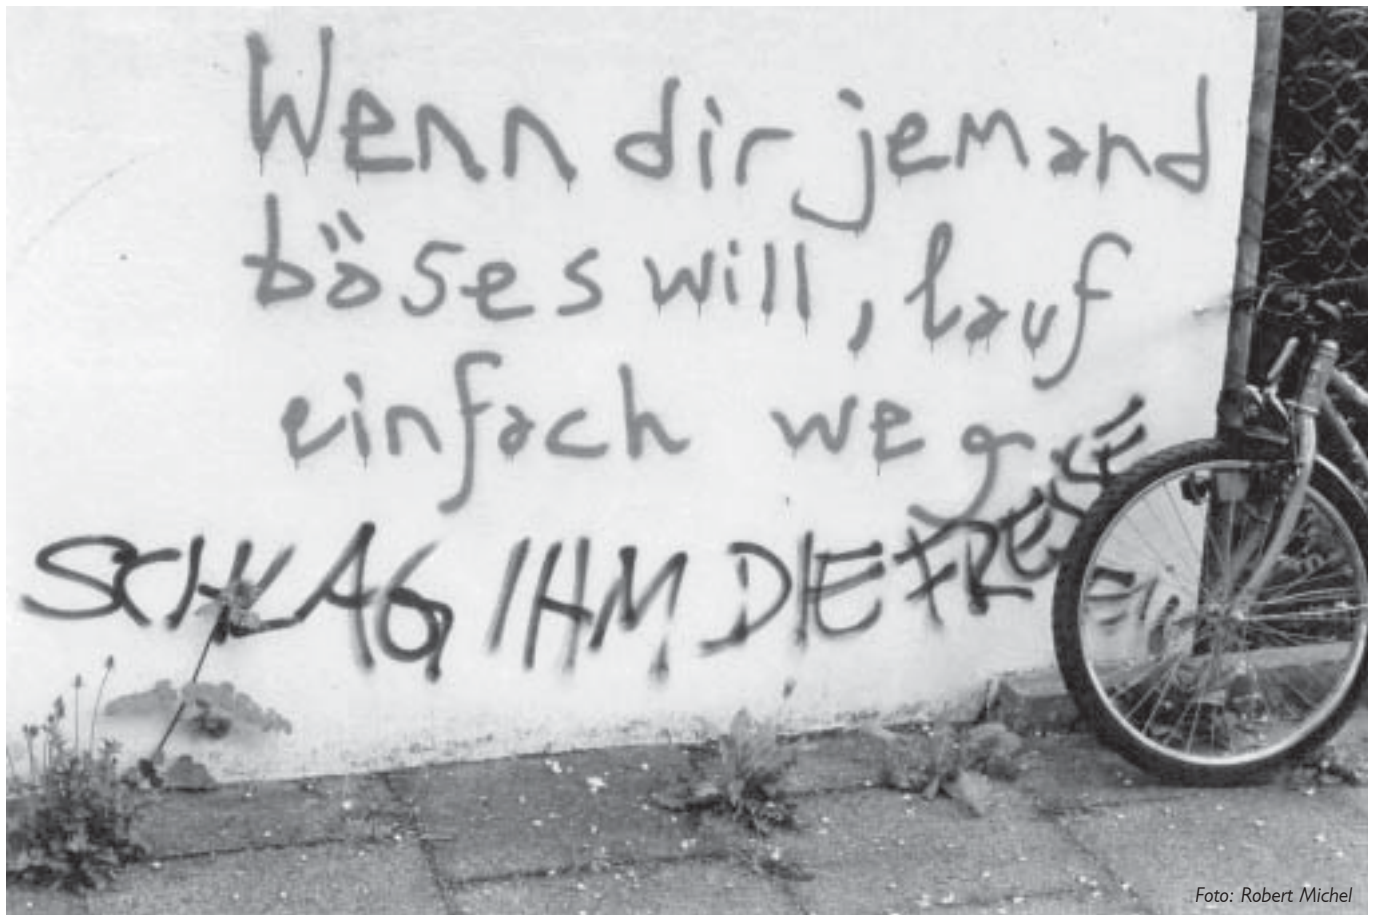 Wenn dir jemand
böses will, lauf
einfach weg
SCHLAG IHM DIE FRESSE
EIN
Foto: Robert Michel